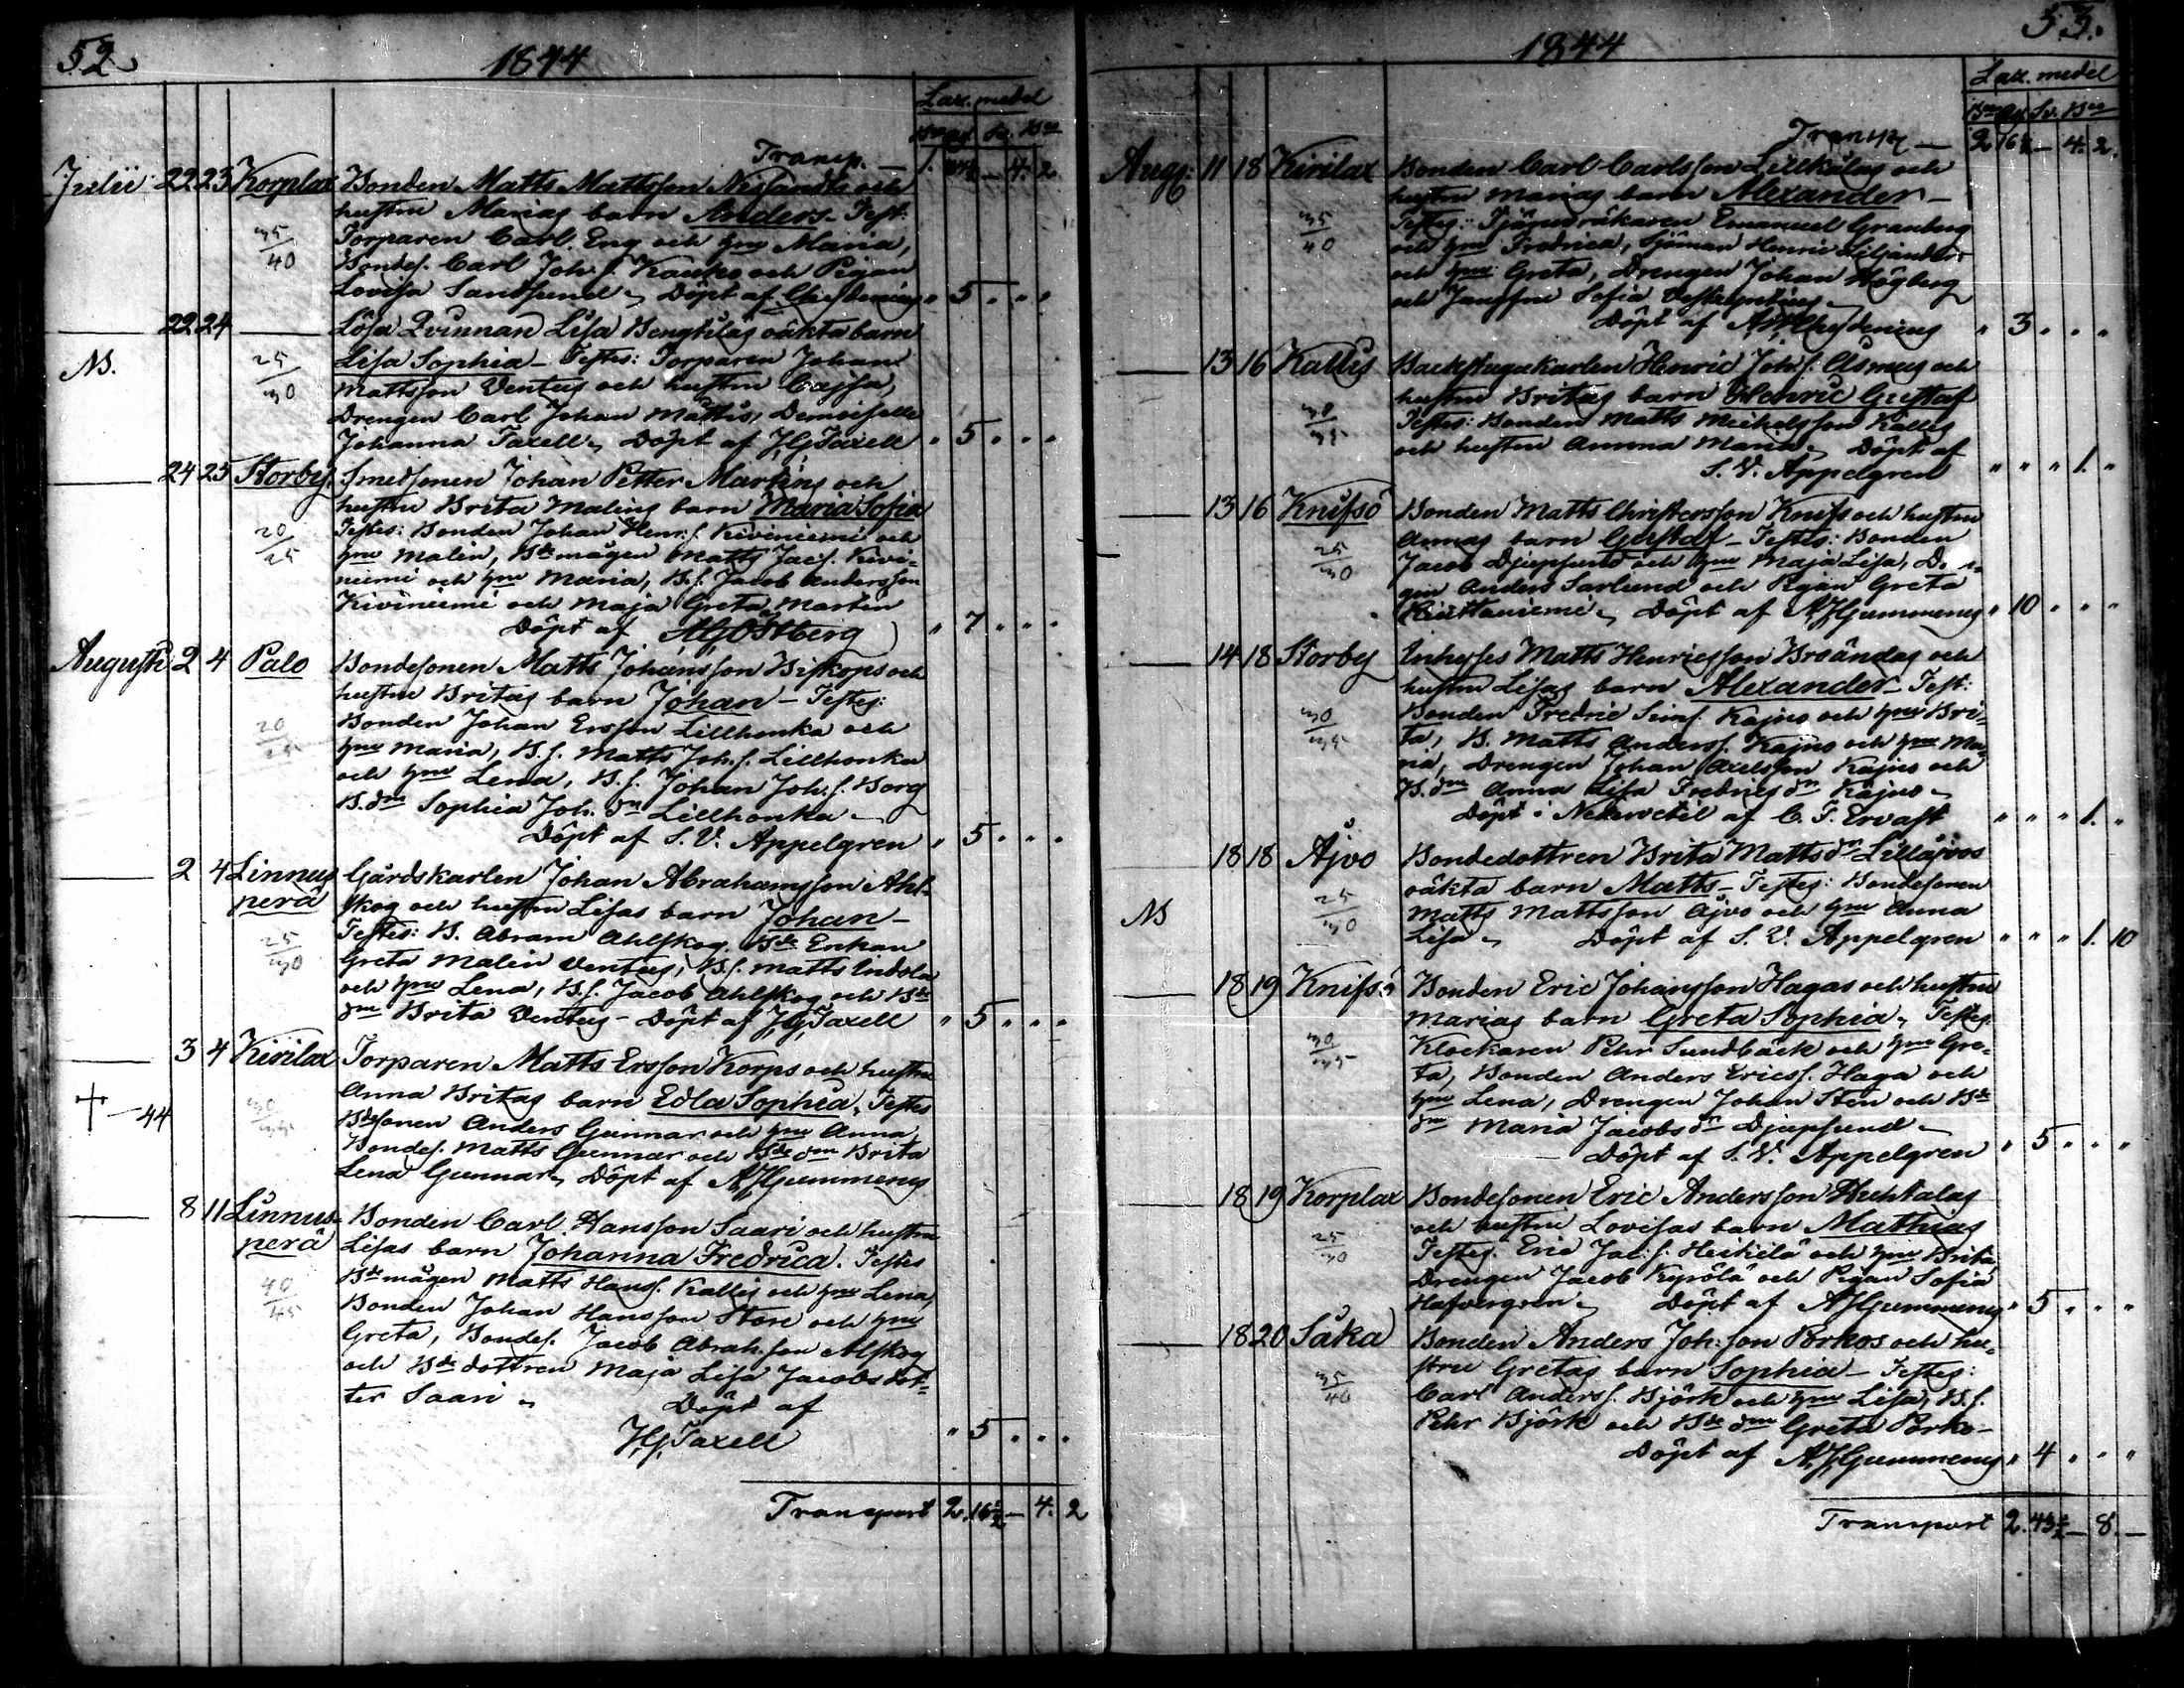 52
1844
Laz. medel
Transp. — 1. — 4. 2.
Julii 22 23 Korplax Bonden Matts Mattsson Nislandts och
hustru Marias barn Anders - Test:
35/40 Torparen Carl Eng och hnu Maria,
Bondes. Carl Joh. s. Kauko och Pigan
Lovisa Sandsund - Döpt af Chydenius " 5 " " "
— 22 24 — Lösa Qvinnan Lisa Bengtilas oäkta barn
NB. 25/30 Lisa Sophia - Testes: Torparen Johan
Mattsson Ventus och hustru Cajsa,
Drengen Carl Johan Mattus, Demoiselle
Johanna Taxell - Döpt af J.G. Taxell " 5 " " "
— 24 25 Storby Smedsonen Johan Petter Martins och
hustru Brita Malins barn Maria Sofia
20/25 Testes: Bonden Johan Henr. s. Kiviniemi och
hnu Malin, Bde mågen Matts Jac s. Kivi-
niemi och hnu Maria, B. s. Jacob Andersson
Kiviniemi och Maja Greta Martin
Döpt af A G Östberg " 7 " " "
Augusti 2 4 Palo Bondesonen Matts Johansson Biskops och
hustru Britas barn Johan - Testes:
20/25 Bonden Johan Ersson Lillhonka och
hnu Maria, B. s. Matts Joh. s. Lillhonka
och hnu Lena, B. s. Johan Joh. s. Borg
B. dn Sophia Joh. dn Lillhonka -
Döpt af S. V. Appelgren " 5 " " "
— 2 4 Linnus Gårdskarlen Johan Abrahamsson Ahl-
perä skog och hustru Lisas barn Johan -
25/30 Testes: B. Abram Ahlskog. Bde Enkan
Greta Malin Ventus, B. s. Matts Indola
och hnu Lena, B. s. Jacob Ahlskog och Bde
dn Brita Ventus - Döpt af J.G. Taxell " 5 " " "
— 3 4 Kivilax Torparen Matts Ersson Korps och hustru
Anna Britas barn Edla Sophia, Testes
† — 44 30/35 Bdesonen Anders Gunnar och hnu Anna,
Bondes. Matts Gunnar och Bde dn Brita
Lena Gunnar, Döpt af A J Gummerus
— 8 11 Linnus- Bonden Carl Hansson Saari och hustru
perä Lisas barn Johanna Fredrica. Testes
40/45 Bde mågen Matts Hans s. Kallis och hnu Lena,
Bonden Johan Hansson Store och hnu
Greta, Bondes. Jacob Abrah. son Alskog
och Bde dottren Maja Lisa Jacobs dot-
ter Saari - Döpt af
J.G. Taxell " 5 " " "
Transport 2. 16½ — 4. 2
53.
1844
Laz. medel
Transp — 2 16½ — 4. 2.
Aug: 11 18 Kivilax Bonden Carl Carlsson Lillkålas och
hustru Marias barn Alexander -
35/40 Testes: Tjärubråkaren Emanuel Granberg
och hnu Fredrica, Sjöman Henric Liljander
och hnu Greta, Drengen Johan Högberg
och Jungfru Sofia
Döpt af A W Chydenius " 3 " " "
— 13 16 Kallis Backstugukarlen Henric Joh. s. Asmus och
hustru Britas barn Henric Gustaf
30/35 Testes: Bonden Matts Michelsson Kallis
och hustru Anna Maria - Döpt af
S. V. Appelgren " " " 1. "
— 13 16 Knifsö Bonden Matts Christersson Knifs och hustru
Annas barn Gustaf - Testes: Bonden
25/30 Jacob Djupsund och hnu Maja Lisa,
gen Anders Sarlund och Pigan Greta
Hiuttaniemi - Döpt af A J Gummerus " 10 " " "
— 14 18 Storby Inhyses Matts Henricsson Broändas och
hustru Lisas barn Alexander - Test:
30/35 Bonden Fredric Sim s. Kajno och hnu Bri-
ta, B. Matts Anders s. Kajno och hnu Ma-
ria, Drengen Johan Axelsson Kajno och
B. dn Anna Lisa Fredrics dn Kajno -
Döpt i Nedervetil af C. F. Ervast " " " 1. "
18 18 Åjvo Bondedottren Brita Matts dn Lillåjvos
oäkta barn Matts - Testes: Bondesonen
NB 25/30 Matts Mattsson Åjvo och hnu Anna
Lisa - Döpt af S. V. Appelgren " " " 1. 10
— 18 19 Knifsö Bonden Eric Johansson Hagas och hustru
Marias barn Greta Sophia - Testes
30/35 Klockaren Pehr Sundbäck och hnu Gre-
ta, Bonden Anders Erics s. Haga och
hnu Lena, Drengen Johan Sten och Bde
dn Maria Jacobs dn Djupsund -
Döpt af S. V. Appelgren " 5 " " "
— 18 19 Korplax Bondesonen Eric Andersson Huhtalas
och hustru Lovisas barn Mathias
25/30 Testes: Eric Jac: s. Heikilä och hnu Brita,
Drengen Jacob Kyrölä och Pigan Sofia
Hafvergren - Döpt af A J Gummerus " 5 " " "
— 18 20 Såka Bonden Anders Joh: son Porkos och hu-
stru Gretas barn Sophia - Testes:
35/40 Carl Anders s. Björk och hnu Lisa, B. s.
Pehr Björk och Bde dn Greta Porko -
Döpt af A J Gummerus " 4 " " "
Transport 2. 43½ — 8. —